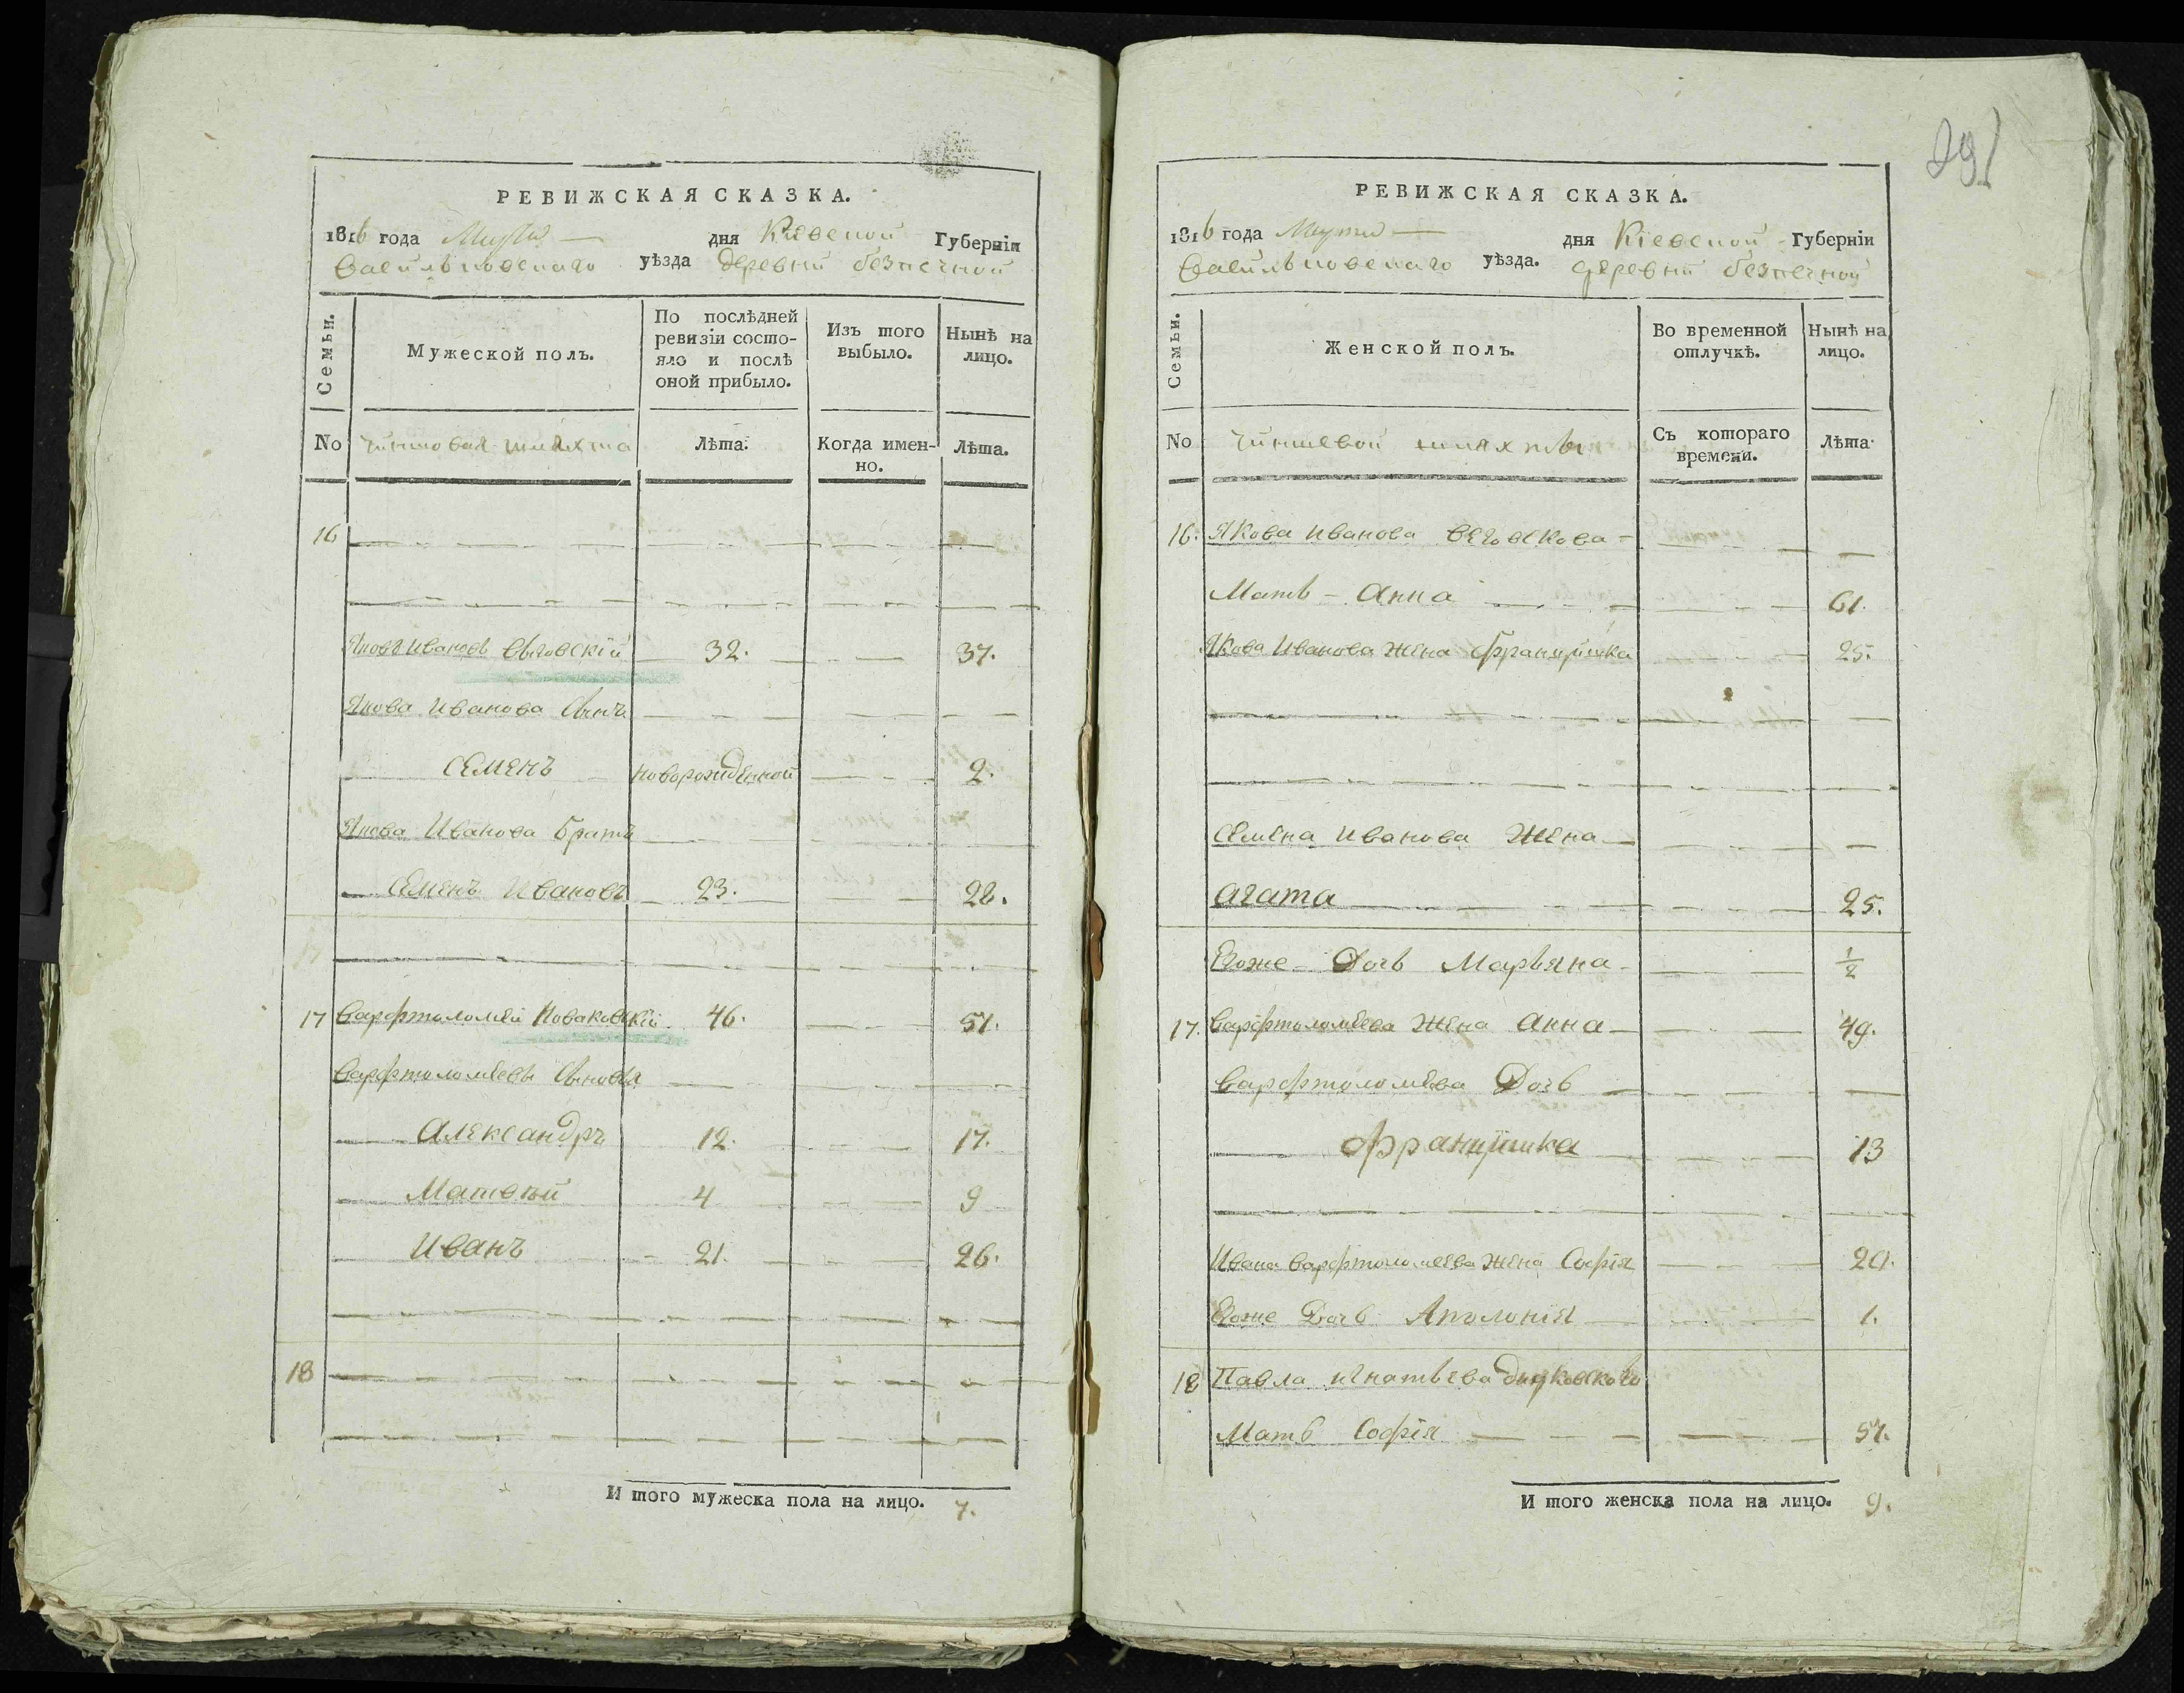 291
РЕВИЖСКАЯ СКАЗКА.
1816 года Марта дня Кіевской Губерніи
Васильковскаго уѣзда деревни безпечной
Семьи.
Мужеской полъ.
По послѣдней ревизіи состояло и послѣ оной прибыло.
Изъ того выбыло.
Нынѣ на лицо.
No чиншовая шляхта Лѣта. Когда именно. Лѣта.
16
Яковъ Ивановъ Выговскій 32. 37.
Якова Иванова Сынъ
Семенъ новорожденной 2.
Якова Иванова Братъ
Семенъ Ивановъ 23. 28.
17 Варфтоломей Новаковскій 46. 51.
Варфтоломеевы Сыновья
Александръ 12. 17.
Матвѣй 4 9
Иванъ 21. 26.
18
И того мужеска пола на лицо. 7.
РЕВИЖСКАЯ СКАЗКА.
1816 года Марта дня Кіевской Губерніи
Васильковскаго уѣзда. деревни безпечной
Семьи.
Женской полъ.
Во временной отлучкѣ.
Нынѣ на лицо.
No чиншевой шляхты Съ котораго времени. Лѣта
16. Якова Иванова
Мать Анна 61.
Якова Иванова жена Францишка 25.
Семена Иванова Жена
Агата 25.
Егоже Дочь Марьяна 1/2
17. Варфтоломеева Жена Анна 49.
Варфтоломеева Дочь
Францишка 13
Ивана Варфтоломеева жена Софія 20.
Егоже Дочь Аполонія 1.
18 Павла Игнатьева
Мать Софія 57.
И того женска пола на лицо. 9.